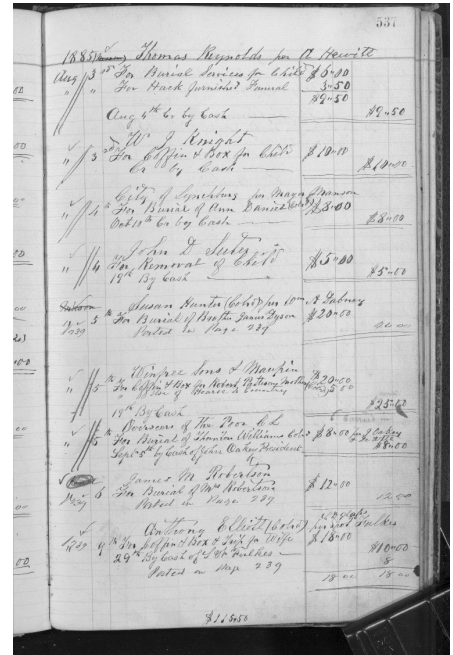 537
1885 Thomas Reynolds per A Hewitt
Aug 3 For Burial Services for Child $6-00
" " For Hack furnished Funeral 3-50
$9-50
Aug 4th Cr by Cash $9-50
W J Knight
" 3 For Coffin & Box for Child $10-00
Cr by Cash $10-00
City of Lynchburg per Mayor Manson
" 4th For Burial of Ann Daniel Cold $8-00
Oct 10th Cr by Cash $8-00
John D Suter
" 4 For Removal of Child $5-00
19th By Cash $5-00
Susan Hunter (Cold) per Wm A Dabney
239 5th For Burial of Janie Dyson $20-00
Posted in Page 239
Winfree Sons & Maupin
" 5th For Coffin & Box for Robert $20-00
" Use of Hearse in Country 5-00
19th By Cash $25-00
Overseers of the Poor C L
" 5th For Burial of Thornton Williams Cold $8-00
Sept 5th by Cash of John Oakey President $8-00
James M Robertson
239 6 For Burial of Mrs Robertson $12-00
Posted in Page 239 12.00
Anthony Elliott (Cold) Fulkes
239 9th For Coffin & Box & Trip for Wife $18-00
29th By Cash of Fulkes $10-00
8
Posted in Page 239
18 00 18 00
$115.50